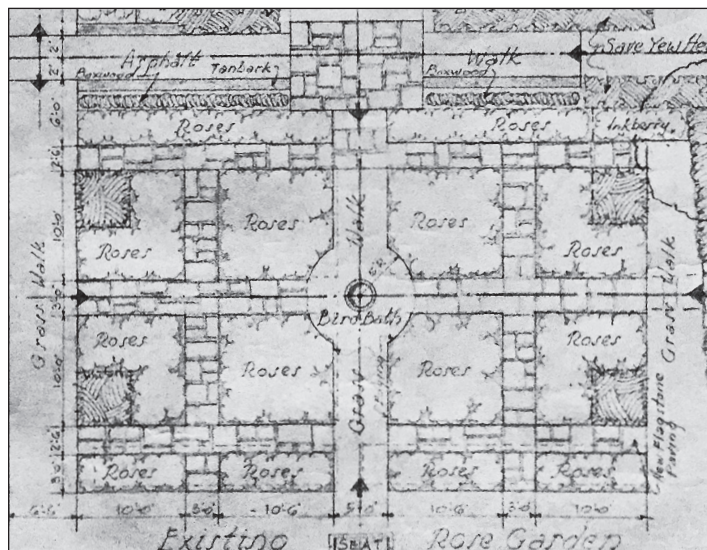 Asphalt Walk Save Yew He
Boxwood Tanbark Boxwood
2' 2'
6'-0"
Roses Roses Inkberry
2'-6"
Roses Roses Roses Roses
10'-0"
Grass Walk
Walk
Grass Walk
Bird Bath
Roses Roses Roses Roses
10'-0"
Grass
2'-6"
New Flagstone Paving
Roses Roses Roses Roses
6'-6" 10'-0" 3'-0" 10'-6" 5'-0" 10'-6" 3'-0" 10'-0"
Existing SEAT Rose Garden